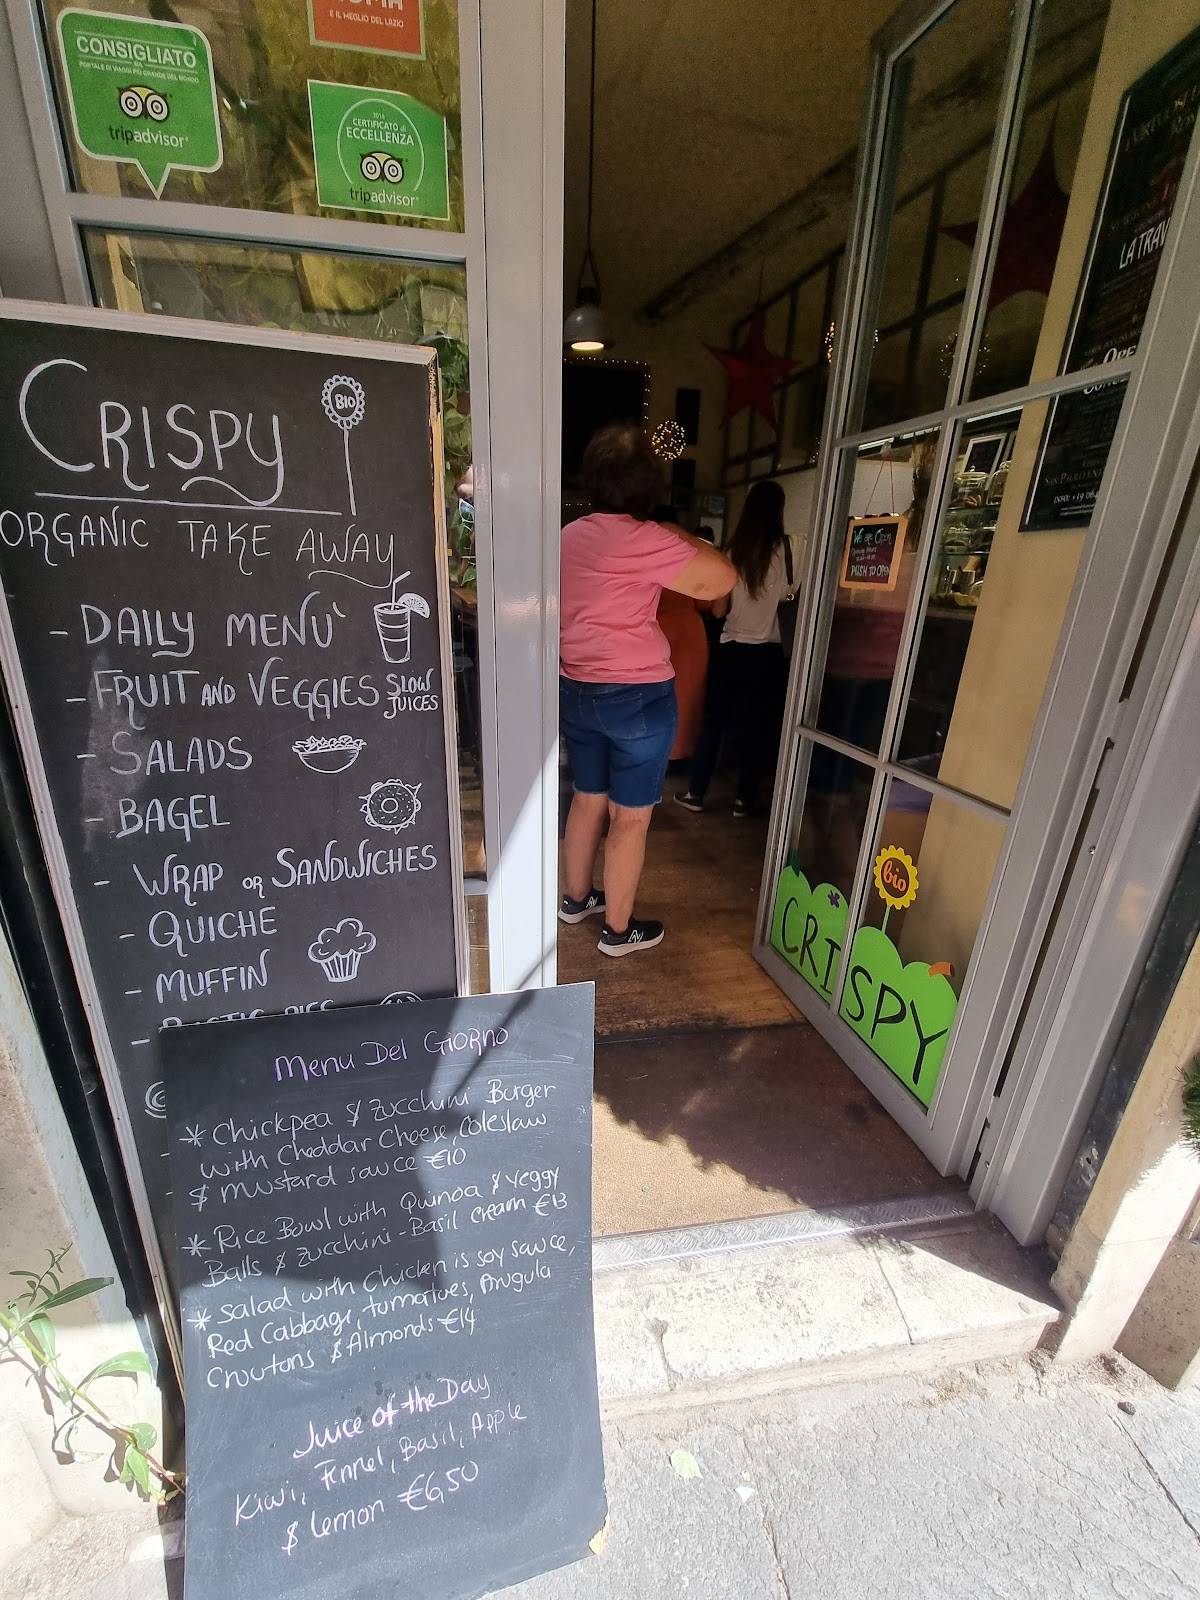 CONSIGLIATO
SUL
PORTALE DI VIAGGI PIÙ GRANDE DEL MONDO
tripadvisor
E IL MEGLIO DEL LAZIO
CERTIFICATO di
ECCELLENZA
tripadvisor
CRISPY
BIO
ORGANIC TAKE AWAY
- DAILY MENU'
- FRUIT AND VEGGIES SLOW
JUICES
- SALADS
- BAGEL
- WRAP OR SANDWICHES
- QUICHE
- MUFFIN
Menu Del GIORNO
* Chickpea & Zucchini Burger
with Cheddar Cheese, Coleslaw
& mustard sauce €10
* Rice Bowl with Quinoa & veggy
Balls & Zucchini-Basil cream €13
* Salad with Chicken is soy sauce,
Red Cabbage, tomatoes, Arugula
Croutons & Almonds €14
Juice of the Day
Kiwi, Fennel, Basil, Apple
& Lemon €6,50
We are Open
PUSH TO OPEN
bio
CRISPY
LA TRAV